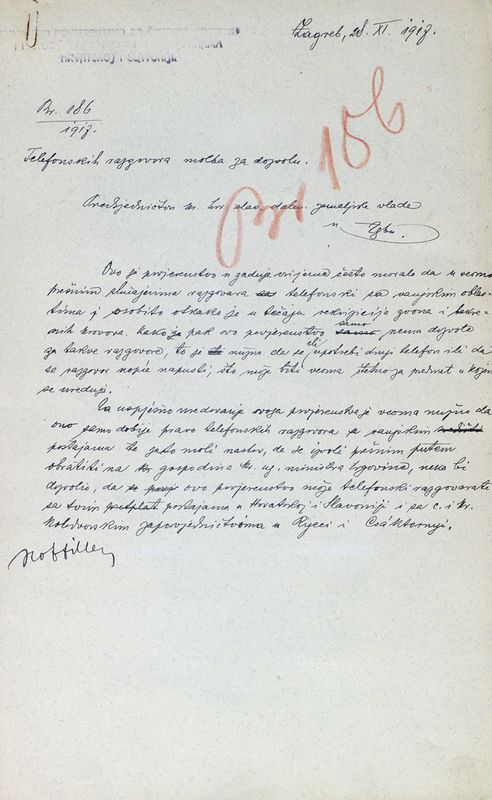 Zagreb, 28. XI. 1917.
Br. 186
1917.
Br. 186
Telefonskih razgovora molba za dozvolu.
Predsjedništvu kr. hrv. slav. dalm. zemaljske vlade
u Zgbu.
Ovo je povjerenstvo u zadnje vrijeme često moralo da u veoma
prešnim slučajevima razgovara telefonski sa vanjskim oblas-
tima i osobito otkako je u tečaju rekvizicija zvona i bakre-
nih krovova. Kako pak ovo povjerenstvo samo nema dozvole
za takve razgovore, to je nužno da se ili upotrebi drugi telefon ili da
se razgovor napušti, što može biti veoma štetno za predmet u kojem
se ureduje.
Za uspješno uredovanje ovoga povjerenstva je veoma nužno da
ono samo dobije pravo telefonskih razgovora sa vanjskim
postajama te zato moli naslov, da se izvoli prešnim putem
obratiti na gospodina kr. ug. ministra trgovine, neka bi
dozvolio, da ovo povjerenstvo može telefonski razgovarati
sa svim postajama u Hrvatskoj i Slavoniji i sa c. i kr.
kolodvorskim zapovjedništvima u Rijeci i Csáktornyi.